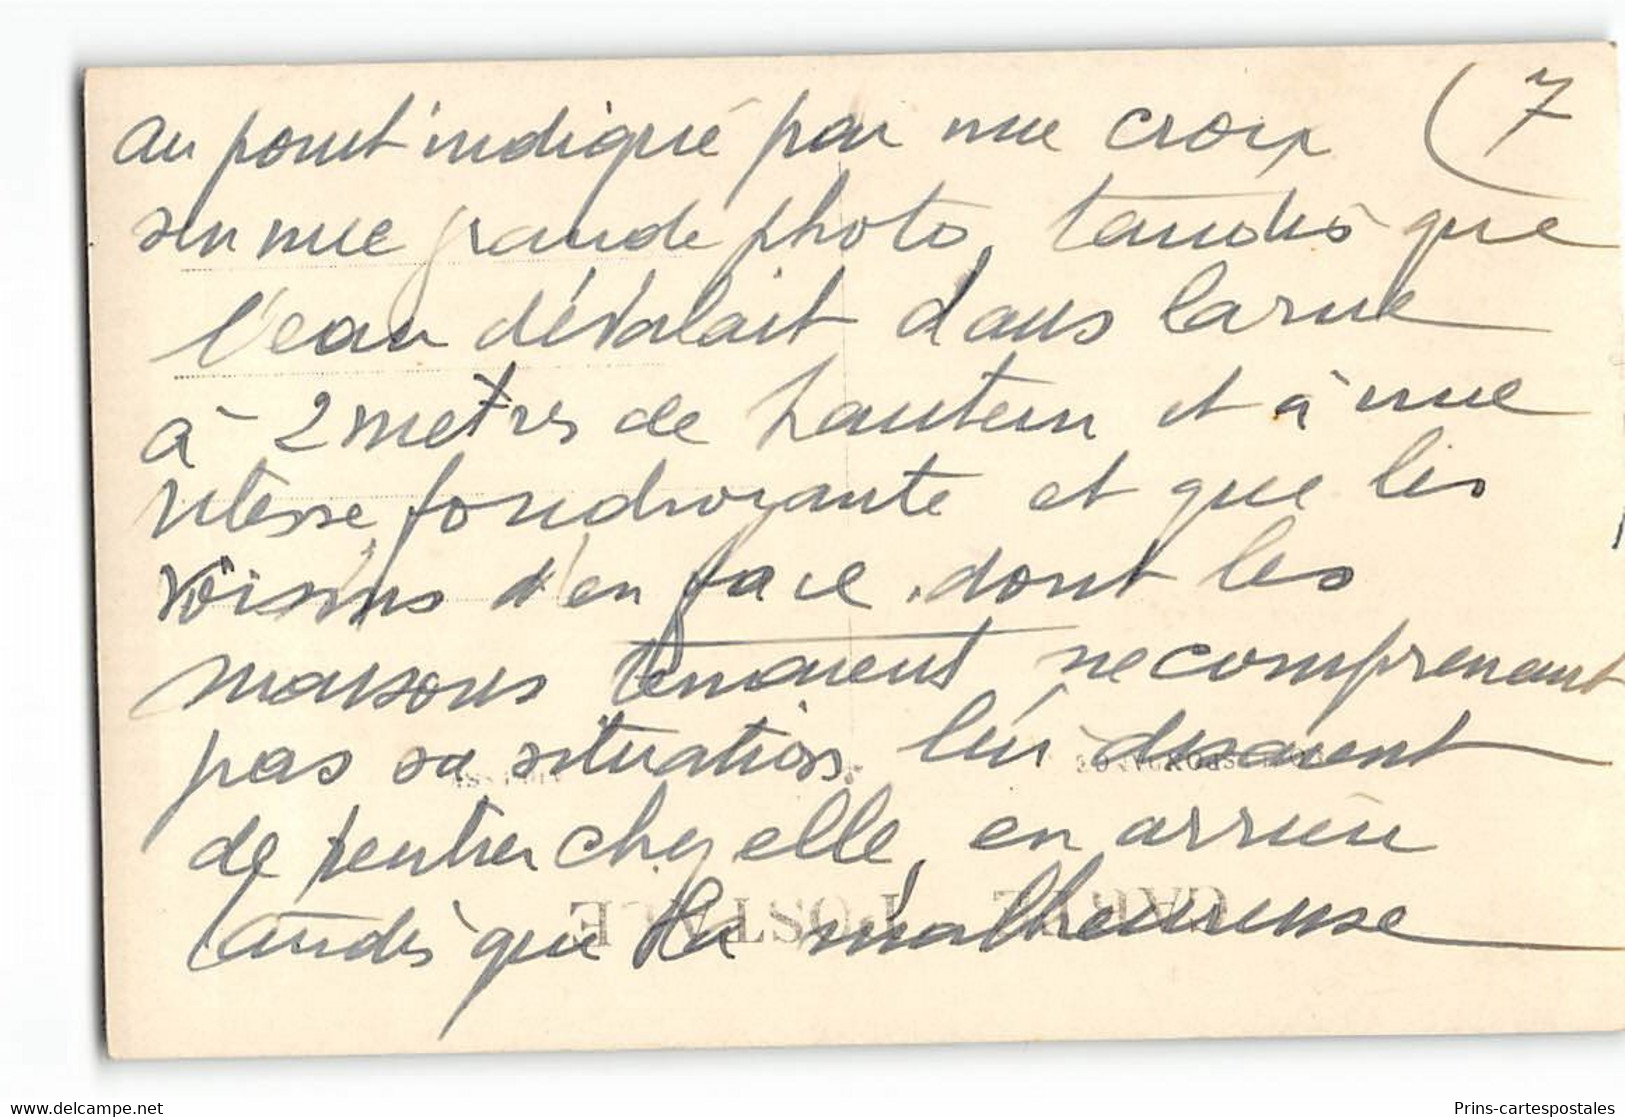 (7
au point indiqué par une croix
sur une grande photo, tandis que
l'eau dévalait dans la rue
à 2 metres de hauteur et à une
vitesse foudroyante et que les
voisins d'en face, dont les
maisons tenaient, ne comprenant
pas sa situation, lui disaient
de rentrer chez elle, en arrière
tandis que la malheureuse
CARTE POSTALE
www.delcampe.net
Prins-cartespostales